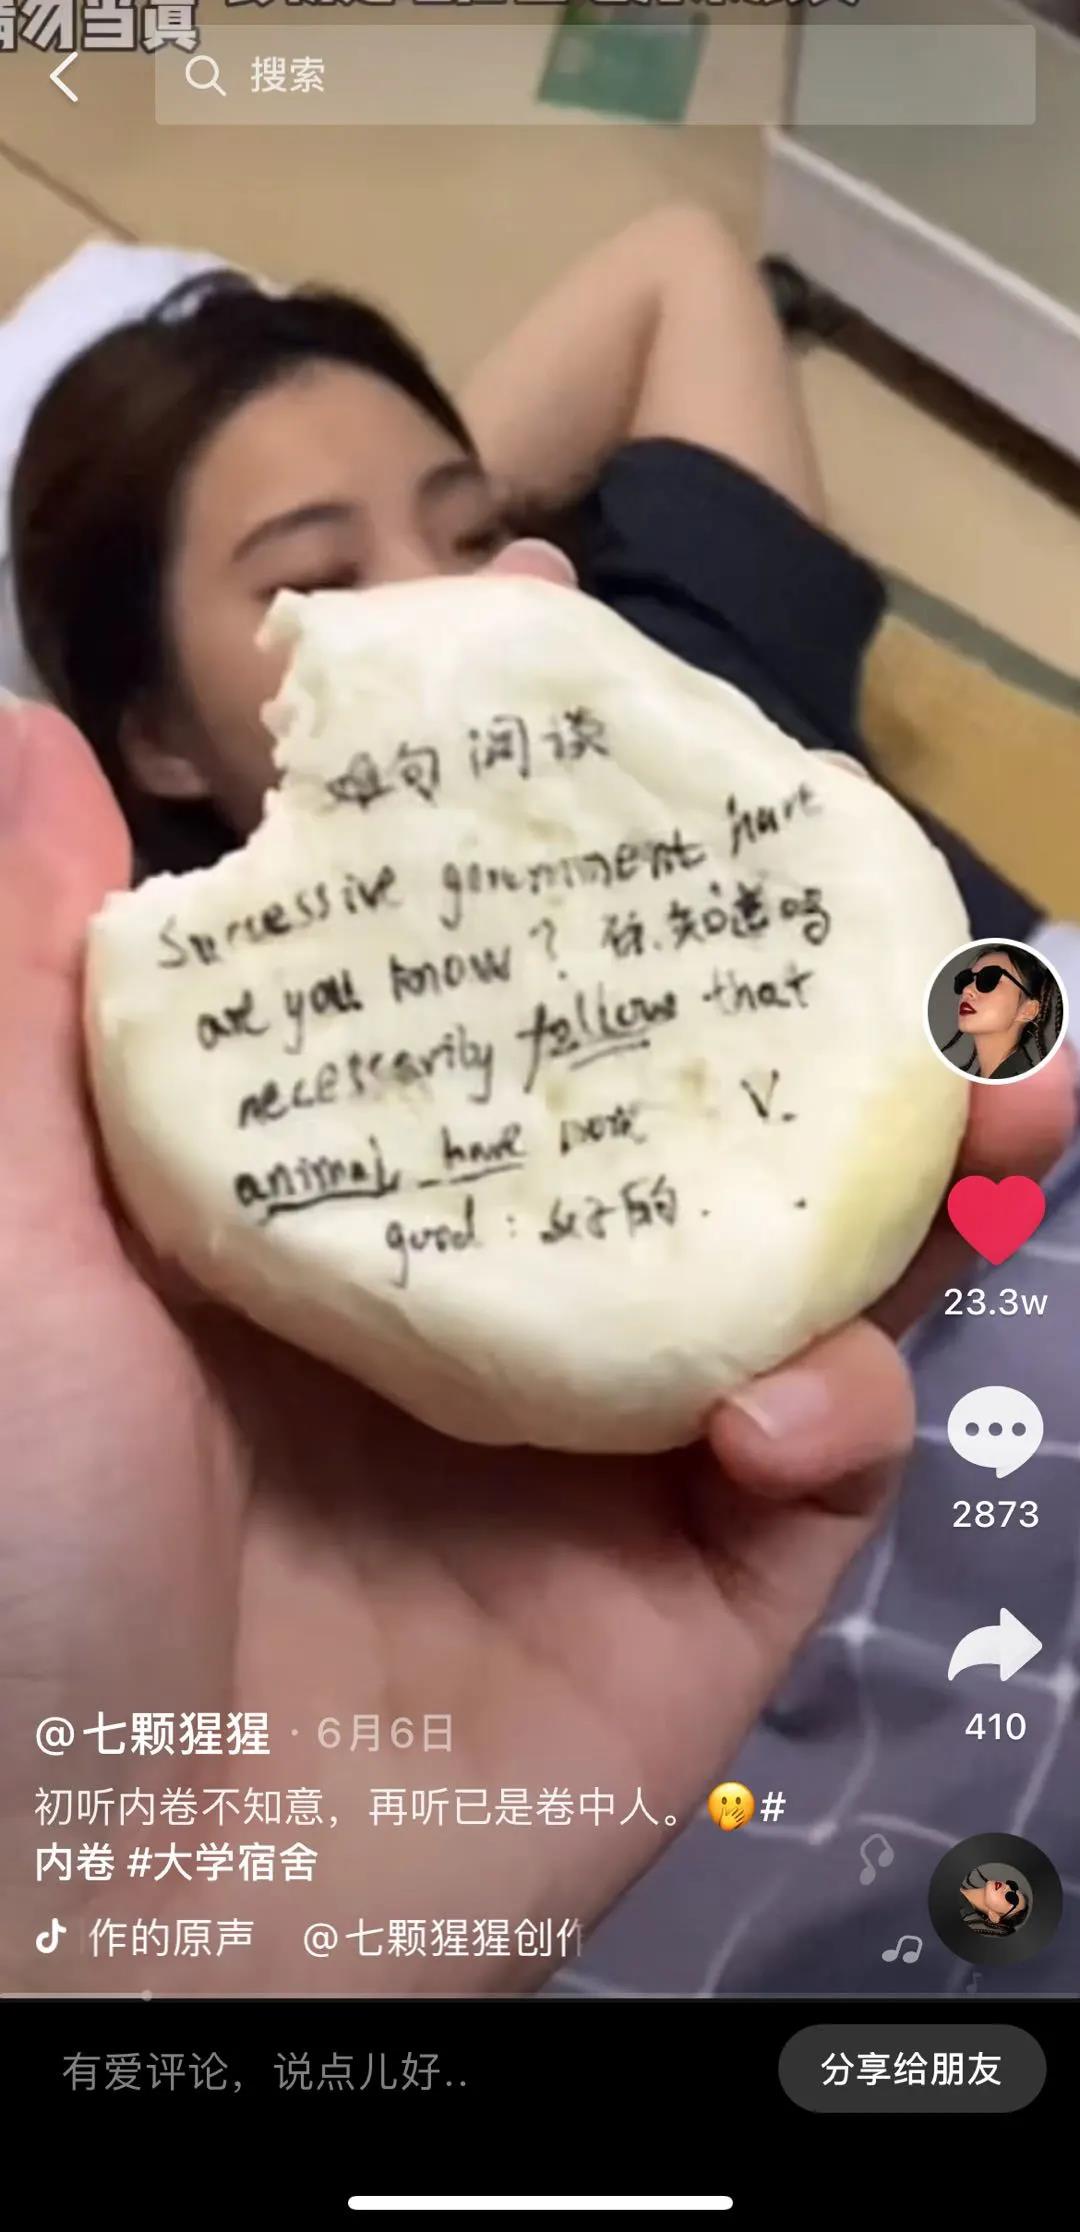 请勿当真
搜索
难句阅读
Successive government have
are you know? 你知道吗
necessarily follow that
animal have more V.
good: 好的.
23.3w
2873
410
@七颗猩猩 · 6月6日
初听内卷不知意，再听已是卷中人。🤭#
内卷 #大学宿舍
作的原声 @七颗猩猩创作
有爱评论，说点儿好..
分享给朋友